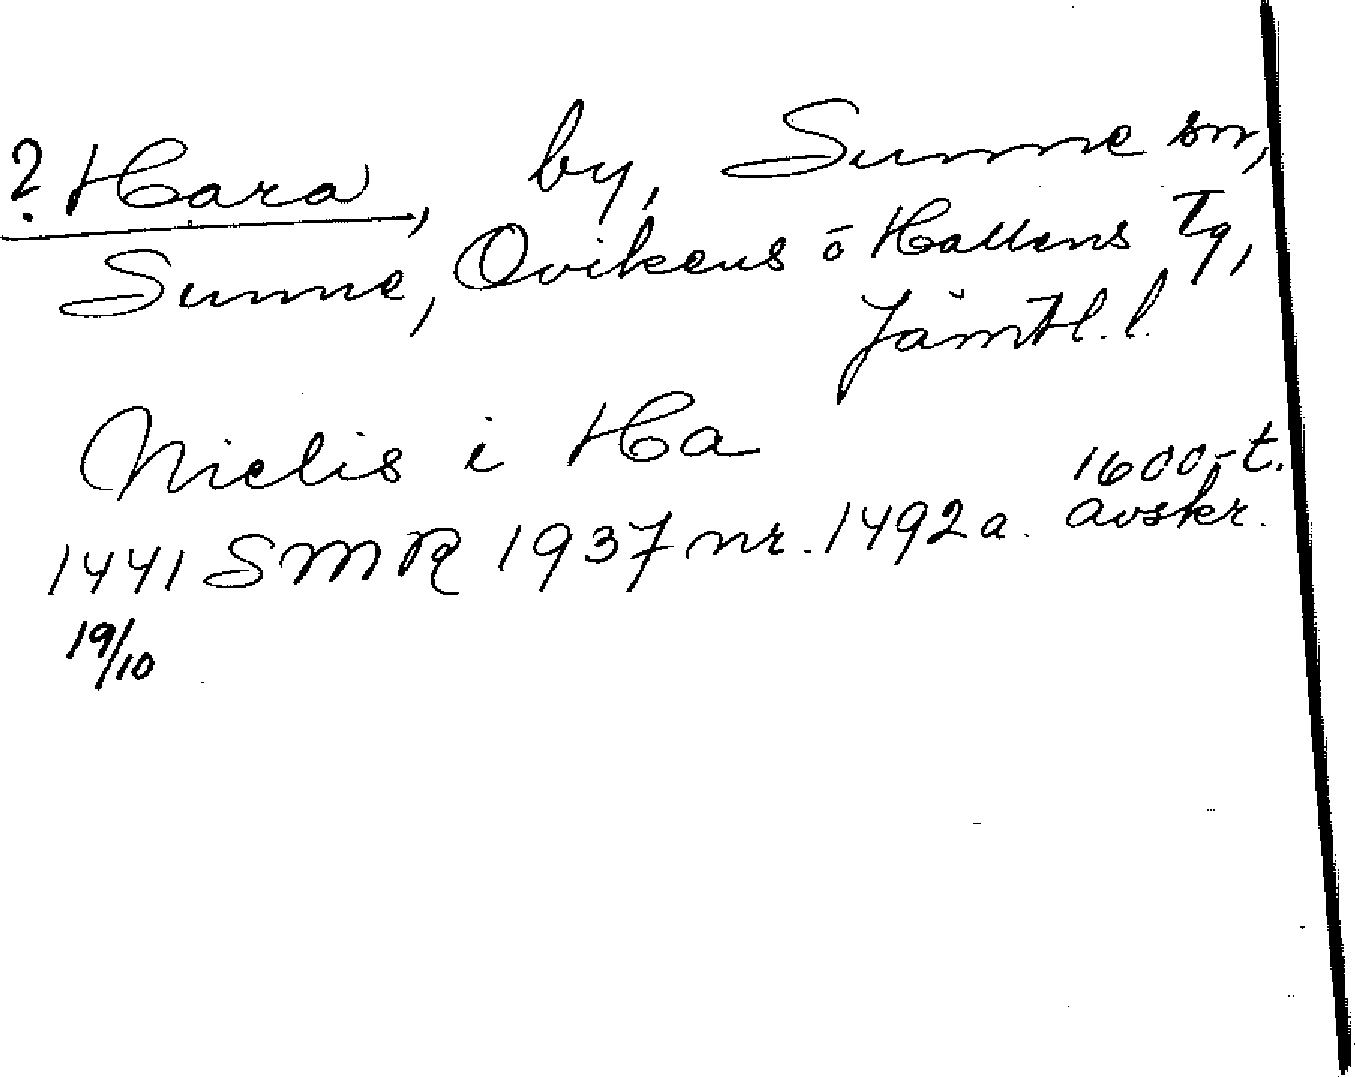 ? Hara, by, Sunne sn,
Sunne, Ovikens o Hallens Tg,
Jämtl. l.
Nielis i Ha
1600-t.
1441 SMR 1937 nr. 1492 a. avskr.
19/10